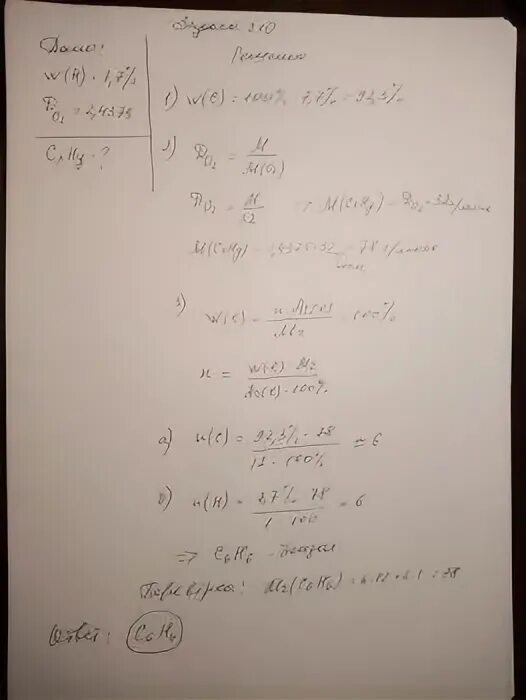 Задача 210
Дано:
W(H) = 7,7%
D O2 = 2,4375
CxHy - ?
Решение
1) W(C) = 100% 7,7% = 92,3%
2) D O2 = M / M(O2)
D O2 = M / 32 => M(CxHy) = D O2 · 32 г/моль
M(CxHy) = 2,4375·32 = 78 г/моль
3) W(C) = n · Ar(C) / Mr · 100%
n = W(C) Mr / Ar(C) · 100%
а) n(C) = 92,3% · 78 / 12 · 100% = 6
б) n(H) = 7,7% 78 / 1 100 = 6
=> C6H6 - бензол
Проверка: Mr(C6H6) = 6·12 + 6·1 = 78
Ответ: C6H6